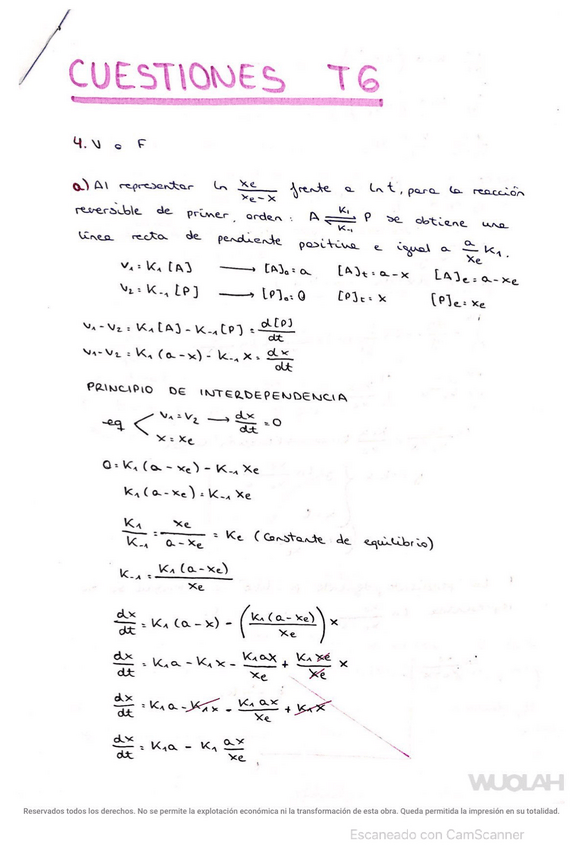 CUESTIONES T6
4. V o F
a) Al representar ln xe/(xe-x) frente a ln t, para la reacción
reversible de primer orden: A ⇌ P (K1, K-1) se obtiene una
línea recta de pendiente positiva e igual a a/xe K1.
V1 = K1 [A] ⟶ [A]o = a [A]t = a-x [A]e = a-xe
V2 = K-1 [P] ⟶ [P]o = 0 [P]t = x [P]e = xe
V1-V2 = K1[A] - K-1[P] = d[P]/dt
V1-V2 = K1 (a-x) - K-1 x = dx/dt
PRINCIPIO DE INTERDEPENDENCIA
eq < V1 = V2 ⟶ dx/dt = 0
x = xe
0 = K1 (a - xe) - K-1 xe
K1 (a-xe) = K-1 xe
K1/K-1 = xe/(a-xe) = Ke (constante de equilibrio)
K-1 = K1(a-xe)/xe
dx/dt = K1 (a-x) - (K1(a-xe)/xe) x
dx/dt = K1a - K1x - K1ax/xe + K1xe/xe x
dx/dt = K1a - K1x - K1ax/xe + K1x
dx/dt = K1a - K1 ax/xe
WUOLAH
Reservados todos los derechos. No se permite la explotación económica ni la transformación de esta obra. Queda permitida la impresión en su totalidad.
Escaneado con CamScanner